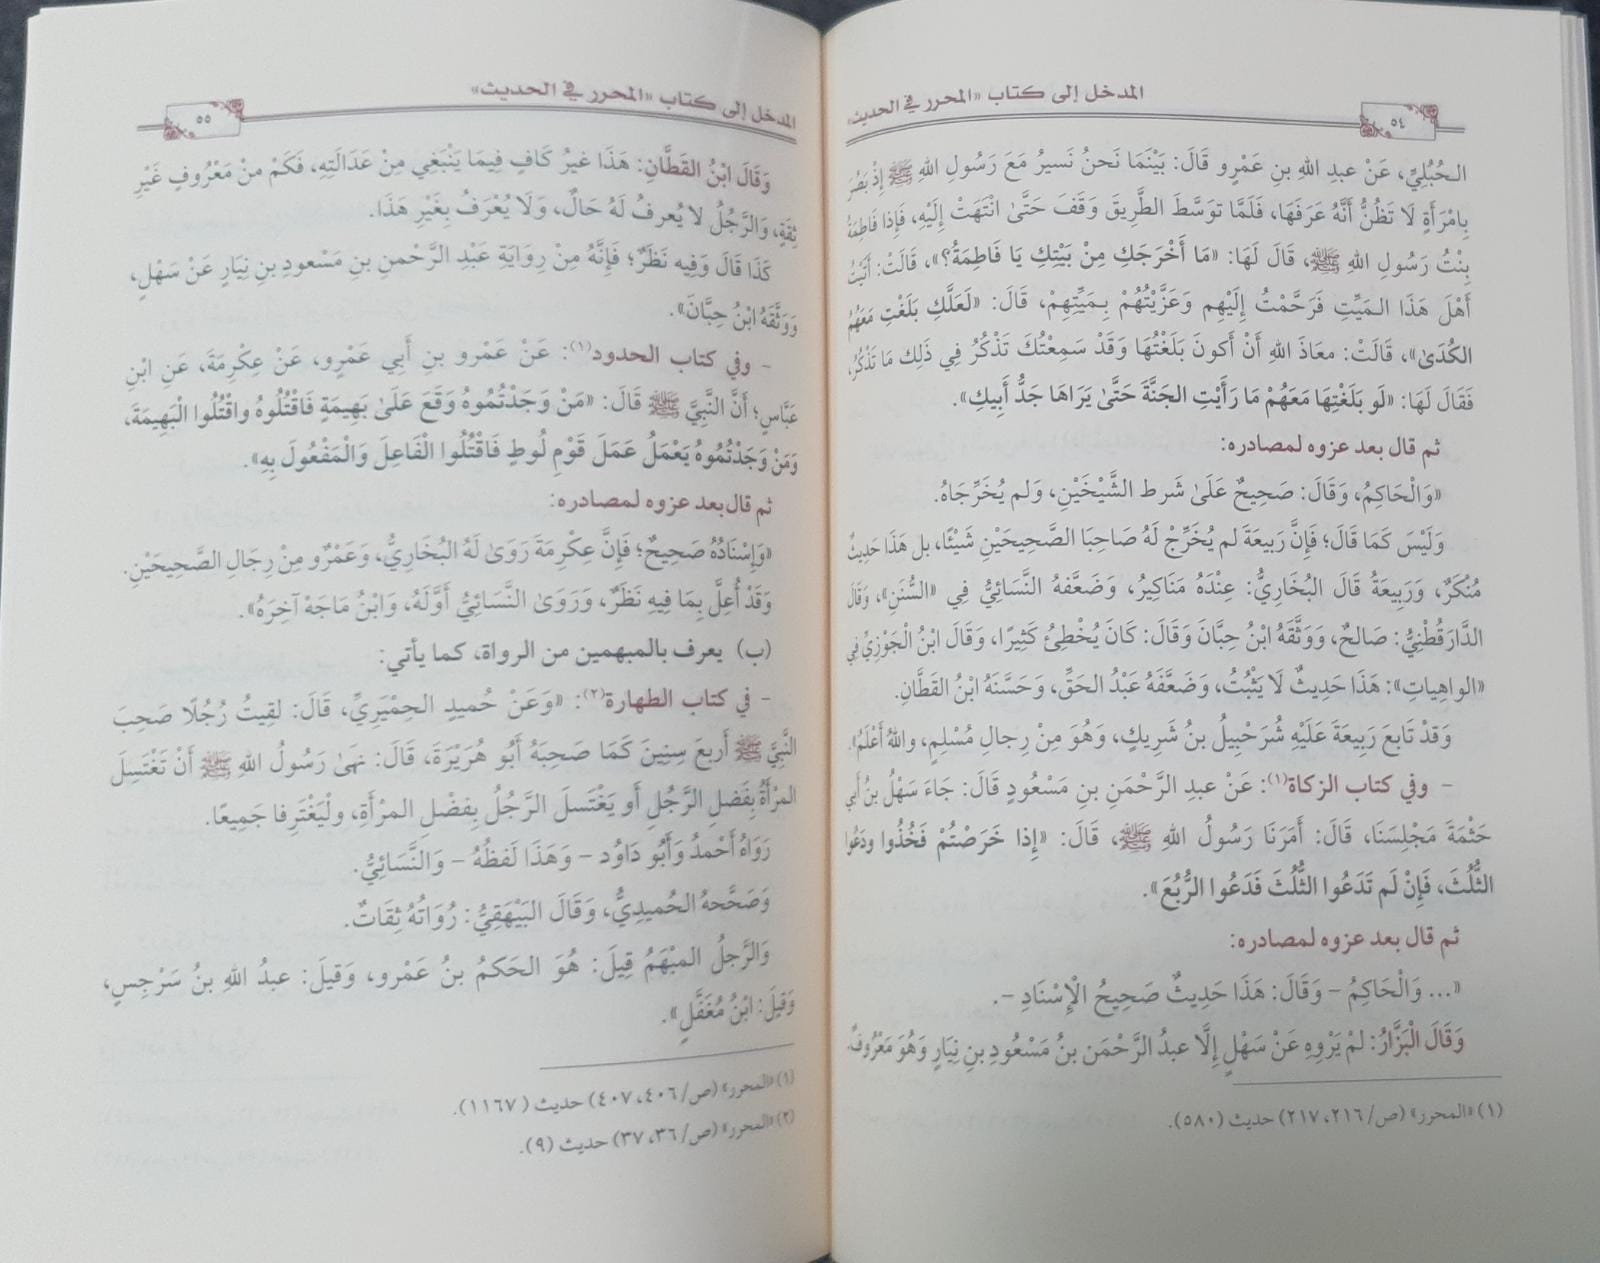 المدخل إلى كتاب «المحرر في الحديث»
٥٤
الـحُبُلِيِّ، عَنْ عبدِ اللهِ بنِ عَمْرٍو قَالَ: بَيْنَمَا نَحنُ نَسيرُ مَعَ رَسُولِ اللهِ ﷺ إِذْ بَصُرَ
بِامْرَأَةٍ لَا تَظُنُّ أَنَّهُ عَرَفَهَا، فَلَمَّا توَسَّطَ الطَّرِيقَ وَقَفَ حَتَّىٰ انْتَهَتْ إِلَيْهِ، فَإِذا فَاطِمَةُ
بِنْتُ رَسُولِ اللهِ ﷺ، قَالَ لَهَا: «مَا أَخْرَجَكِ مِنْ بَيْتِكِ يَا فَاطِمَةُ؟»، قَالَتْ: أَتَيْتُ
أَهْلَ هَذَا الـمَيِّتِ فَرَحَّمْتُ إِلَيْهِم وَعَزَّيْتُهُمْ بِـمَيِّتِهِمْ، قَالَ: «لَعَلَّكِ بَلَغْتِ مَعَهُمُ
الكُدَىٰ»، قَالَتْ: معَاذَ اللهِ أَنْ أَكونَ بَلَغْتُهَا وَقَدْ سَمِعْتُكَ تَذْكُرُ فِي ذَلِك مَا تَذْكُرُ،
فَقَالَ لَهَا: «لَو بَلَغْتِهَا مَعَهُمْ مَا رَأَيْتِ الجَنَّةَ حَتَّىٰ يَرَاهَا جَدُّ أَبِيكِ».
ثم قال بعد عزوه لمصادره:
«وَالْحَاكِمُ، وَقَالَ: صَحِيحٌ عَلَىٰ شَرط الشَّيْخَيْنِ، وَلم يُخَرِّجَاهُ.
وَلَيْسَ كَمَا قَالَ؛ فَإِنَّ رَبِيعَةَ لم يُخَرِّج لَهُ صَاحِبَا الصَّحِيحَيْنِ شَيْئًا، بل هَذَا حَدِيثٌ
مُنْكَرٌ، وَرَبِيعَةُ قَالَ البُخَارِيُّ: عِنْدَهُ مَنَاكِيرُ، وَضَعَّفهُ النَّسَائِيُّ فِي «السُّنَنِ»، وَقَالَ
الدَّارَقُطْنِيُّ: صَالحٌ، وَوَثَّقَهُ ابْنُ حِبَّانَ وَقَالَ: كَانَ يُخْطِئُ كَثِيرًا، وَقَالَ ابْنُ الْجَوْزِيِّ فِي
«الواهِيَاتِ»: هَذَا حَدِيثٌ لَا يَثْبُتُ، وَضَعَّفَهُ عَبْدُ الحَقِّ، وَحَسَّنَهُ ابْنُ القَطَّانِ.
وَقَدْ تَابعَ رَبِيعَةَ عَلَيْهِ شُرَحْبِيلُ بنُ شَرِيكٍ، وَهُوَ مِنْ رِجالِ مُسْلِمٍ، واللهُ أَعْلَمُ».
- وفي كتاب الزكاة(١): عَنْ عبدِ الرَّحْمَنِ بنِ مَسْعُودٍ قَالَ: جَاءَ سَهْلُ بنُ أَبي
حَثْمَةَ مَجْلِسَنَا، قَالَ: أَمَرَنَا رَسُولُ اللهِ ﷺ، قَالَ: «إِذا خَرَصْتُمْ فَخُذُوا ودَعُوا
الثُّلُثَ، فَإِنْ لَم تَدَعُوا الثُّلُثَ فَدَعُوا الرُّبُعَ».
ثم قال بعد عزوه لمصادره:
«... وَالْحَاكِمُ - وَقَالَ: هَذَا حَدِيثٌ صَحِيحُ الْإِسْنَادِ -.
وَقَالَ الْبَزَّارُ: لمْ يَرْوِهِ عَنْ سَهْلٍ إِلَّا عبدُ الرَّحْمَن بنُ مَسْعُودِ بنِ نِيَارٍ وَهُوَ مَعْرُوفٌ.
(١) «المحرر» (ص/٢١٦، ٢١٧) حديث (٥٨٠).
المدخل إلى كتاب «المحرر في الحديث»
٥٥
وَقَالَ ابْنُ القَطَّانِ: هَذَا غيرُ كَافٍ فِيمَا يَنْبَغِي مِنْ عَدَالَتِهِ، فَكَمْ منْ مَعْرُوفٍ غَيْرِ
ثِقَةٍ، وَالرَّجُلُ لا يُعرفُ لَهُ حَالٌ، وَلَا يُعْرَفُ بِغَيْرِ هَذَا.
كَذَا قَالَ وَفِيه نَظَرٌ؛ فَإِنَّهُ مِنْ رِوَايَةِ عَبْدِ الرَّحْمنِ بنِ مَسْعودِ بنِ نِيَارٍ عَنْ سَهْلٍ،
وَوَثَّقَهُ ابْنُ حِبَّانَ».
- وفي كتاب الحدود(١): عَنْ عَمْرِو بنِ أَبِي عَمْرٍو، عَنْ عِكْرِمَةَ، عَنِ ابْنِ
عَبَّاسٍ؛ أَنَّ النَّبِيَّ ﷺ قَالَ: «مَنْ وَجَدْتُمُوهُ وَقَعَ عَلَىٰ بَهِيمَةٍ فَاقْتُلُوهُ واقْتُلُوا الْبَهِيمَةَ،
وَمَنْ وَجَدْتُمُوهُ يَعْمَلُ عَمَلَ قَوْمِ لُوطٍ فَاقْتُلُوا الْفَاعِلَ وَالْمَفْعُولَ بِهِ».
ثم قال بعد عزوه لمصادره:
«وَإِسْنَادُهُ صَحِيحٌ؛ فَإِنَّ عِكْرِمَةَ رَوَىٰ لَهُ البُخَارِيُّ، وَعَمْرٌو مِنْ رِجَالِ الصَّحِيحَيْنِ.
وَقَدْ أُعِلَّ بِمَا فِيهِ نَظَرٌ، وَرَوَىٰ النَّسَائِيُّ أَوَّلَهُ، وَابْنُ مَاجَهْ آخِرَهُ».
(ب) يعرف بالمبهمين من الرواة، كما يأتي:
- في كتاب الطهارة(٢): «وَعَنْ حُميدٍ الحِمْيَرِيِّ، قَالَ: لقِيتُ رُجُلًا صَحِبَ
النَّبِيَّ ﷺ أَربعَ سِنِينَ كَمَا صَحِبَهُ أَبُو هُرَيْرَةَ، قَالَ: نهَىٰ رَسُولُ اللهِ ﷺ أَنْ تَغْتَسِلَ
المرْأَةُ بِفَضلِ الرَّجُلِ أَو يَغْتَسلَ الرَّجُلُ بِفضْلِ المرْأَةِ، ولْيَغْتَرِفا جَمِيعًا.
رَوَاهُ أَحْمدُ وَأَبُو دَاوُد - وَهَذَا لَفظُهُ - وَالنَّسَائِيُّ.
وَصَحَّحهُ الحُميدِيُّ، وَقَالَ البَيْهَقِيُّ: رُوَاتُهُ ثِقَاتٌ.
وَالرَّجلُ المبْهَمُ قِيلَ: هُوَ الحَكمُ بنُ عَمْرو، وَقيلَ: عبدُ اللهِ بنُ سَرْجِسٍ،
وَقِيلَ: ابْنُ مُغَفَّلٍ».
(١) «المحرر» (ص/٤٠٦، ٤٠٧) حديث (١١٦٧).
(٢) «المحرر» (ص/٣٦، ٣٧) حديث (٩).